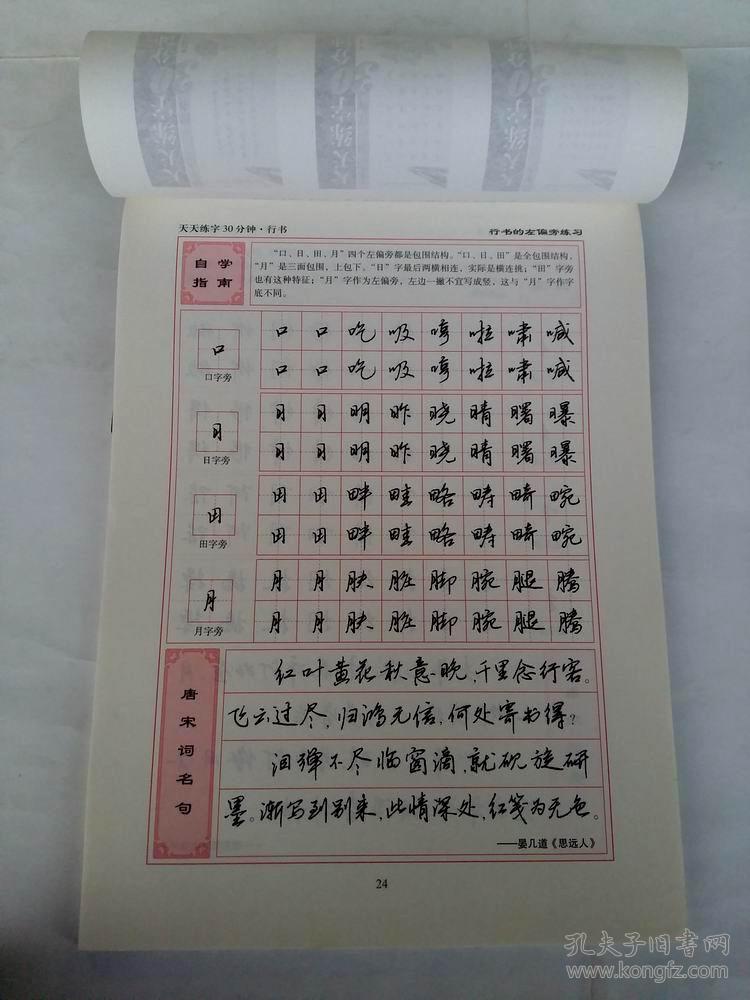 天天练字
30分
天天练字
30分
天天练字
30分
天天练字30分钟·行书
行书的左偏旁练习
自学
指南
“口、日、田、月”四个左偏旁都是包围结构。“口、日、田”是全包围结构，
“月”是三面包围，上包下。“日”字最后两横相连，实际是横连挑；“田”字旁
也有这种特征；“月”字作为左偏旁，左边一撇不宜写成竖，这与“月”字作字
底不同。
口
口字旁
口 口 吃 吸 啦 啸 喊
口 口 吃 吸 啦 啸 喊
日
日字旁
日 日 明 昨 晓 晴 曙 曝
日 日 明 昨 晓 晴 曙 曝
田
田字旁
田 田 畔 畦 略 畴 畸 畹
田 田 畔 畦 略 畴 畸 畹
月
月字旁
月 月 肤 脏 脚 腕 腿 腾
月 月 肤 脏 脚 腕 腿 腾
唐宋词名句
红叶黄花秋意晚，千里念行客。
飞云过尽，归鸿无信，何处寄书得？
泪弹不尽临窗滴，就砚旋研
墨。渐写到别来，此情深处，红笺为无色。
——晏几道《思远人》
24
孔夫子旧书网
www.kongfz.com